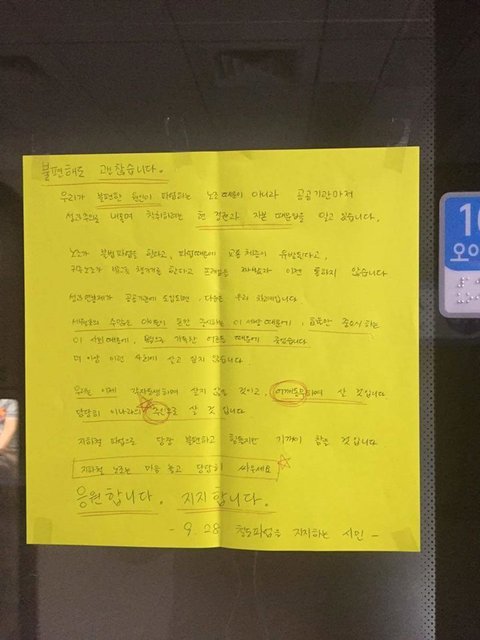 불편해도 괜찮습니다.
우리가 불편한 원인이 파업하는 노조 때문이 아니라 공공기관마저
성과주의를 내몰며 착취하려는 현 정권과 자본 때문임을 알고 있습니다.
노조가 불법파업을 한다고, 파업때문에 교통 체증이 유발된다고,
귀족노조가 밥그릇 챙기기를 한다고 프레임을 짜워봤자 이젠 통하지 않습니다
성과연봉제가 공공기관에 도입되면, 다음은 우리 차례입니다
세월호의 수많은 아이들이 돈만 중시하는 이 세상 때문에, 효율만 중요시 하는
이 사회때문에, 탐욕으로 가득한 어른들 때문에 죽었습니다
더 이상 이런 사회에 살고 싶지 않습니다
우리는 이제 각자도생하며 살지 않을 것이고, 어깨동무하며 살 것입니다
당당히 이나라의 주인으로 살 것 입니다.
지하철 파업으로 당장 불편하고 힘들지만 기꺼이 참을 것입니다
지하철 노조는 마음 놓고 당당히 싸우세요
응원합니다. 지지합니다.
- 9.28 철도파업을 지지하는 시민 -
10
오이